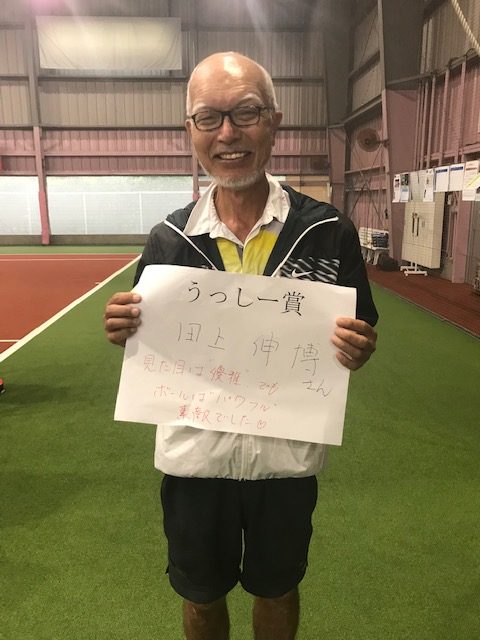 うっしー賞
田上 伸 博
さん
見た目は"優雅"でも
ボールは"パワフル"
素敵でした♡